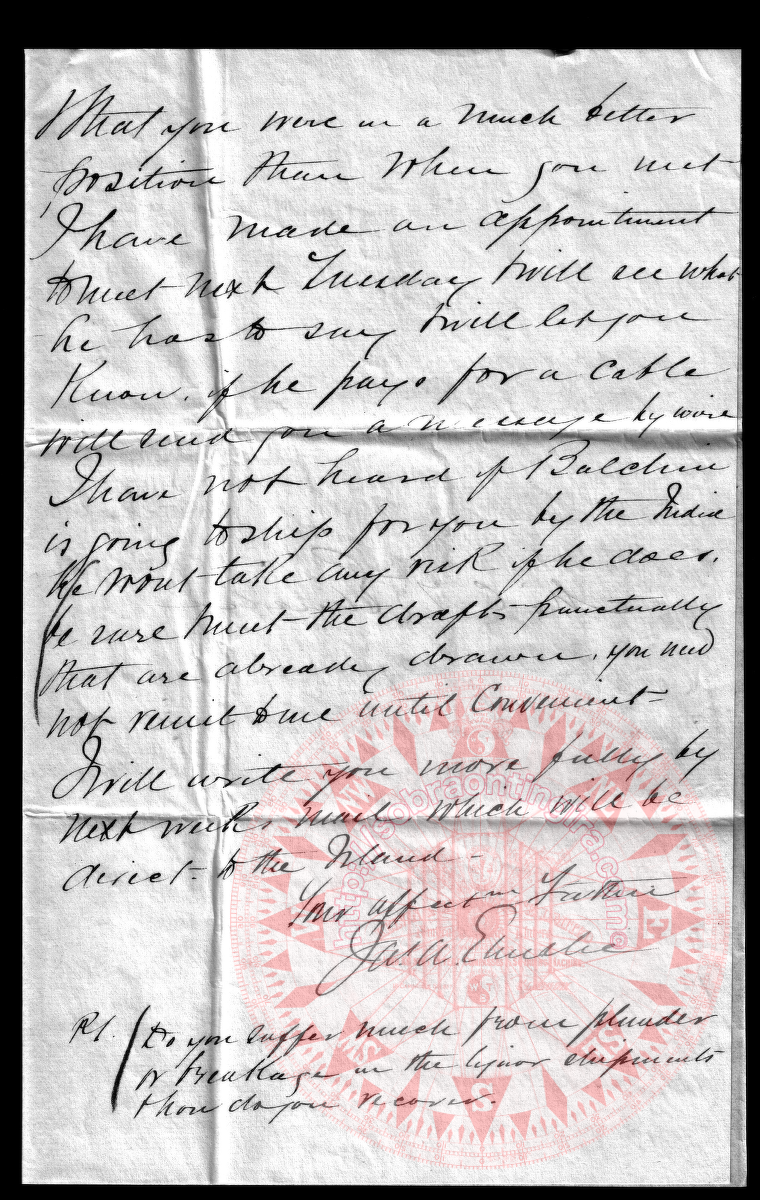 that you were in a much better
position than when you met
I have made an appointment
to meet next Tuesday & will see what
he has to say & will let you
know. if he pays for a cable
will send you a message by wire
I have not heard if Balchin
is going to ship for you by the India
He wont take any risk if he does.
be sure & meet the drafts punctually
that are already drawn. you need
not remit to me until Convenient
I will write you more fully by
next week's mail which will be
direct to the Island -
Your affectn Father
Jas. A.
P.S. Do you suffer much from plunder
or breakage in the liquor shipments
& how do you recover.
http://sobraontingira.com
E
S